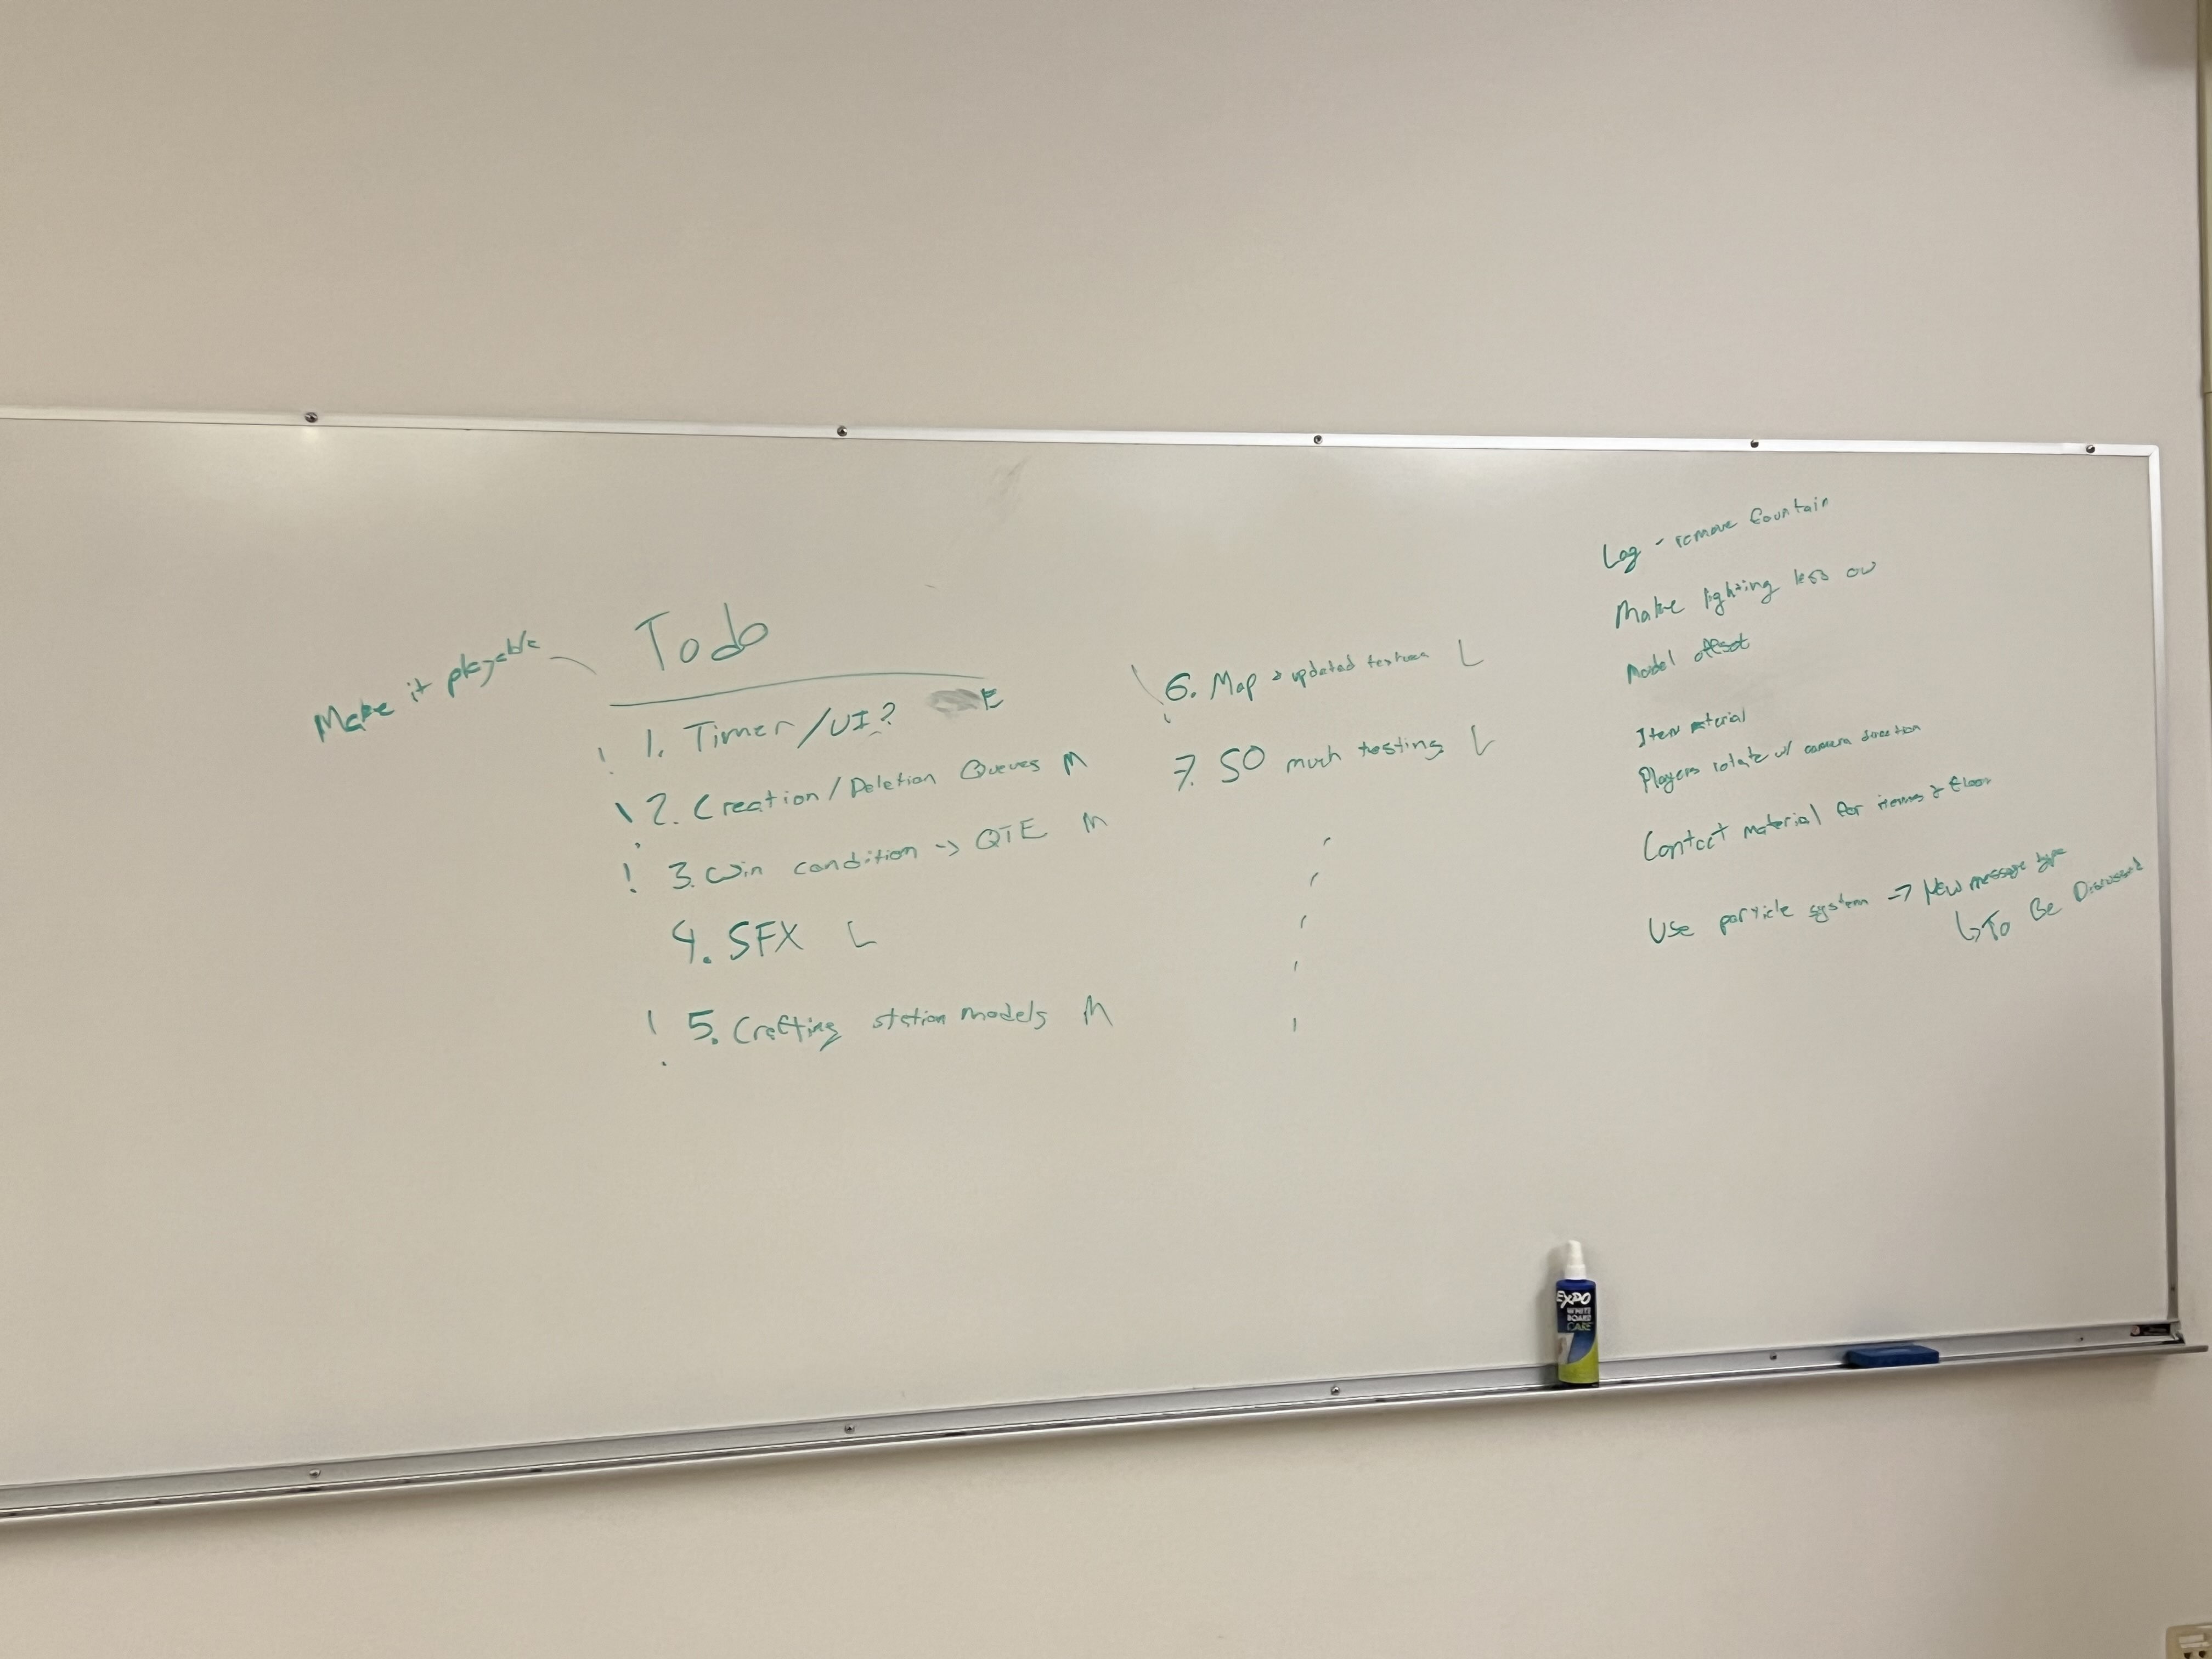 Make it playable
Todo
! 1. Timer/UI? E
! 2. Creation/Deletion Queues M
! 3. Win condition -> QTE M
4. SFX L
! 5. Crafting station models M
! 6. Map updated textures L
7. SO much testing L
Lag - remove fountain
Make lighting less ow
Model offset
Item material
Players rotate w/ camera direction
Contact material for items & floor
Use particle system => New message type
↳ To Be Discussed
EXPO
WHITE
BOARD
CARE